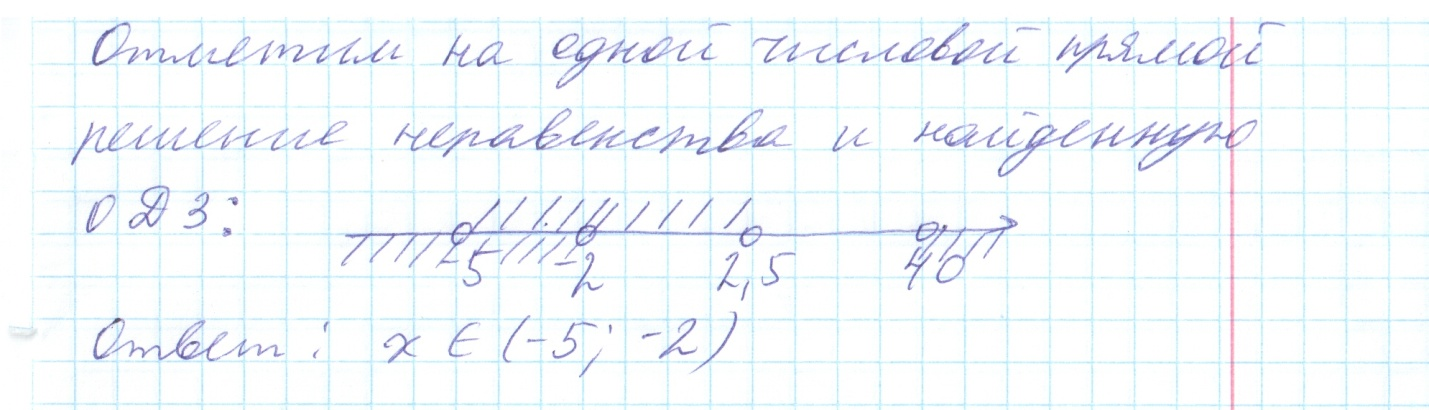 Отметим на одной числовой прямой
решение неравенства и найденную
ОДЗ:
-5 -2 2,5 40
Ответ: x ∈ (-5; -2)